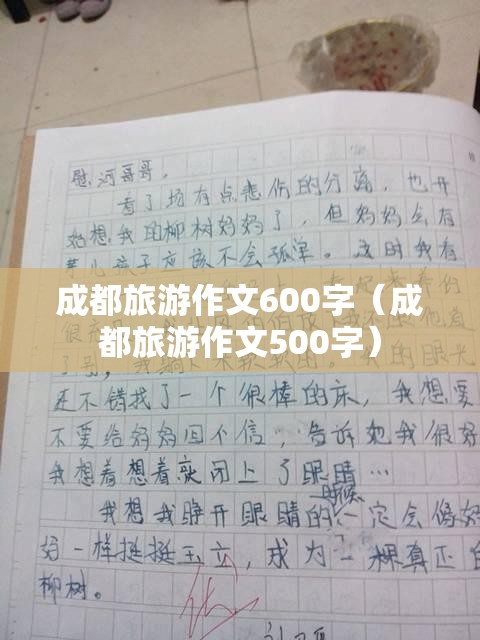 慰,河哥哥。
看了场有点悲伤的分离,也开
始想我的柳树妈妈了,但妈妈会有
孩子应该不会孤单。这时我有
成都旅游作文600字(成
都旅游作文500字)
的眼光
还不错找了一个很棒的床,我想要
不要给妈妈回个信,告诉她我很好
我想着想着就闭上了眼睛…
我想我睁开眼睛的时候一定会像妈
妈一样挺挺玉立,成为一棵真正的
柳树。